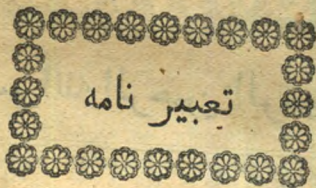 تعبير نامه